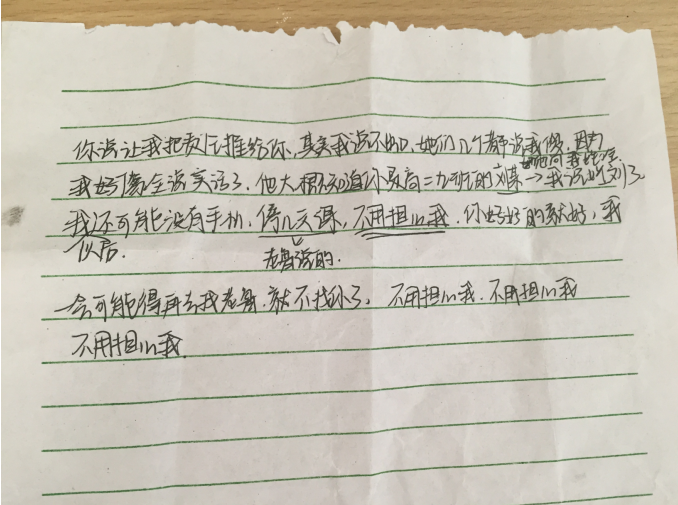 你说让我把责任推给你、其实我说不如,她们几个都说我傻,因为
我好像全说实话了,他大概知道你是高二九班的刘某→我说的刘
我还可能没有手机,停几天课,不用担心我.你好好的就好,我
似后.
老鲁说的.
一会可能得再去找老鲁.就不找你了, 不用担心我.不用担心我
不用担心我.